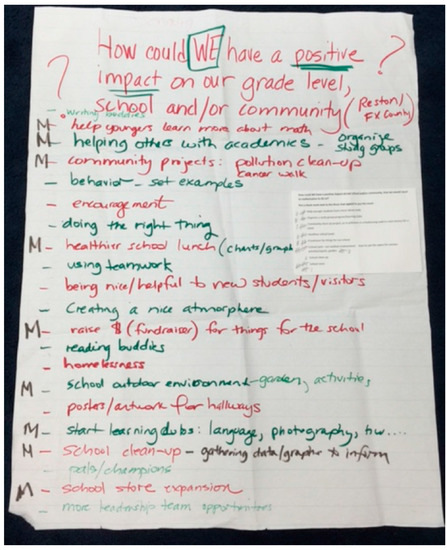 ? How could WE have a positive ?
impact on our grade level,
school and/or community (Reston/
FX County)
- writing buddies
M - help youngers learn more about math
M - helping others with academics - organize
study groups
M - community projects: pollution clean-up
cancer walk
- behavior - set examples
- encouragement
- doing the right thing
M - healthier school lunch (charts/graph
- using teamwork
- being nice/helpful to new students/visitors
- Creating a nice atmosphere
M - raise $ (fundraiser) for things for the school
- reading buddies
- homelessness
M - school outdoor environment - garden, activities
- posters/artwork for hallways
M - start learning clubs: language, photography, hw....
M - school clean-up - gathering data/graphs to inform
- pals/champions
M - school store expansion
- more leadership team opportunities